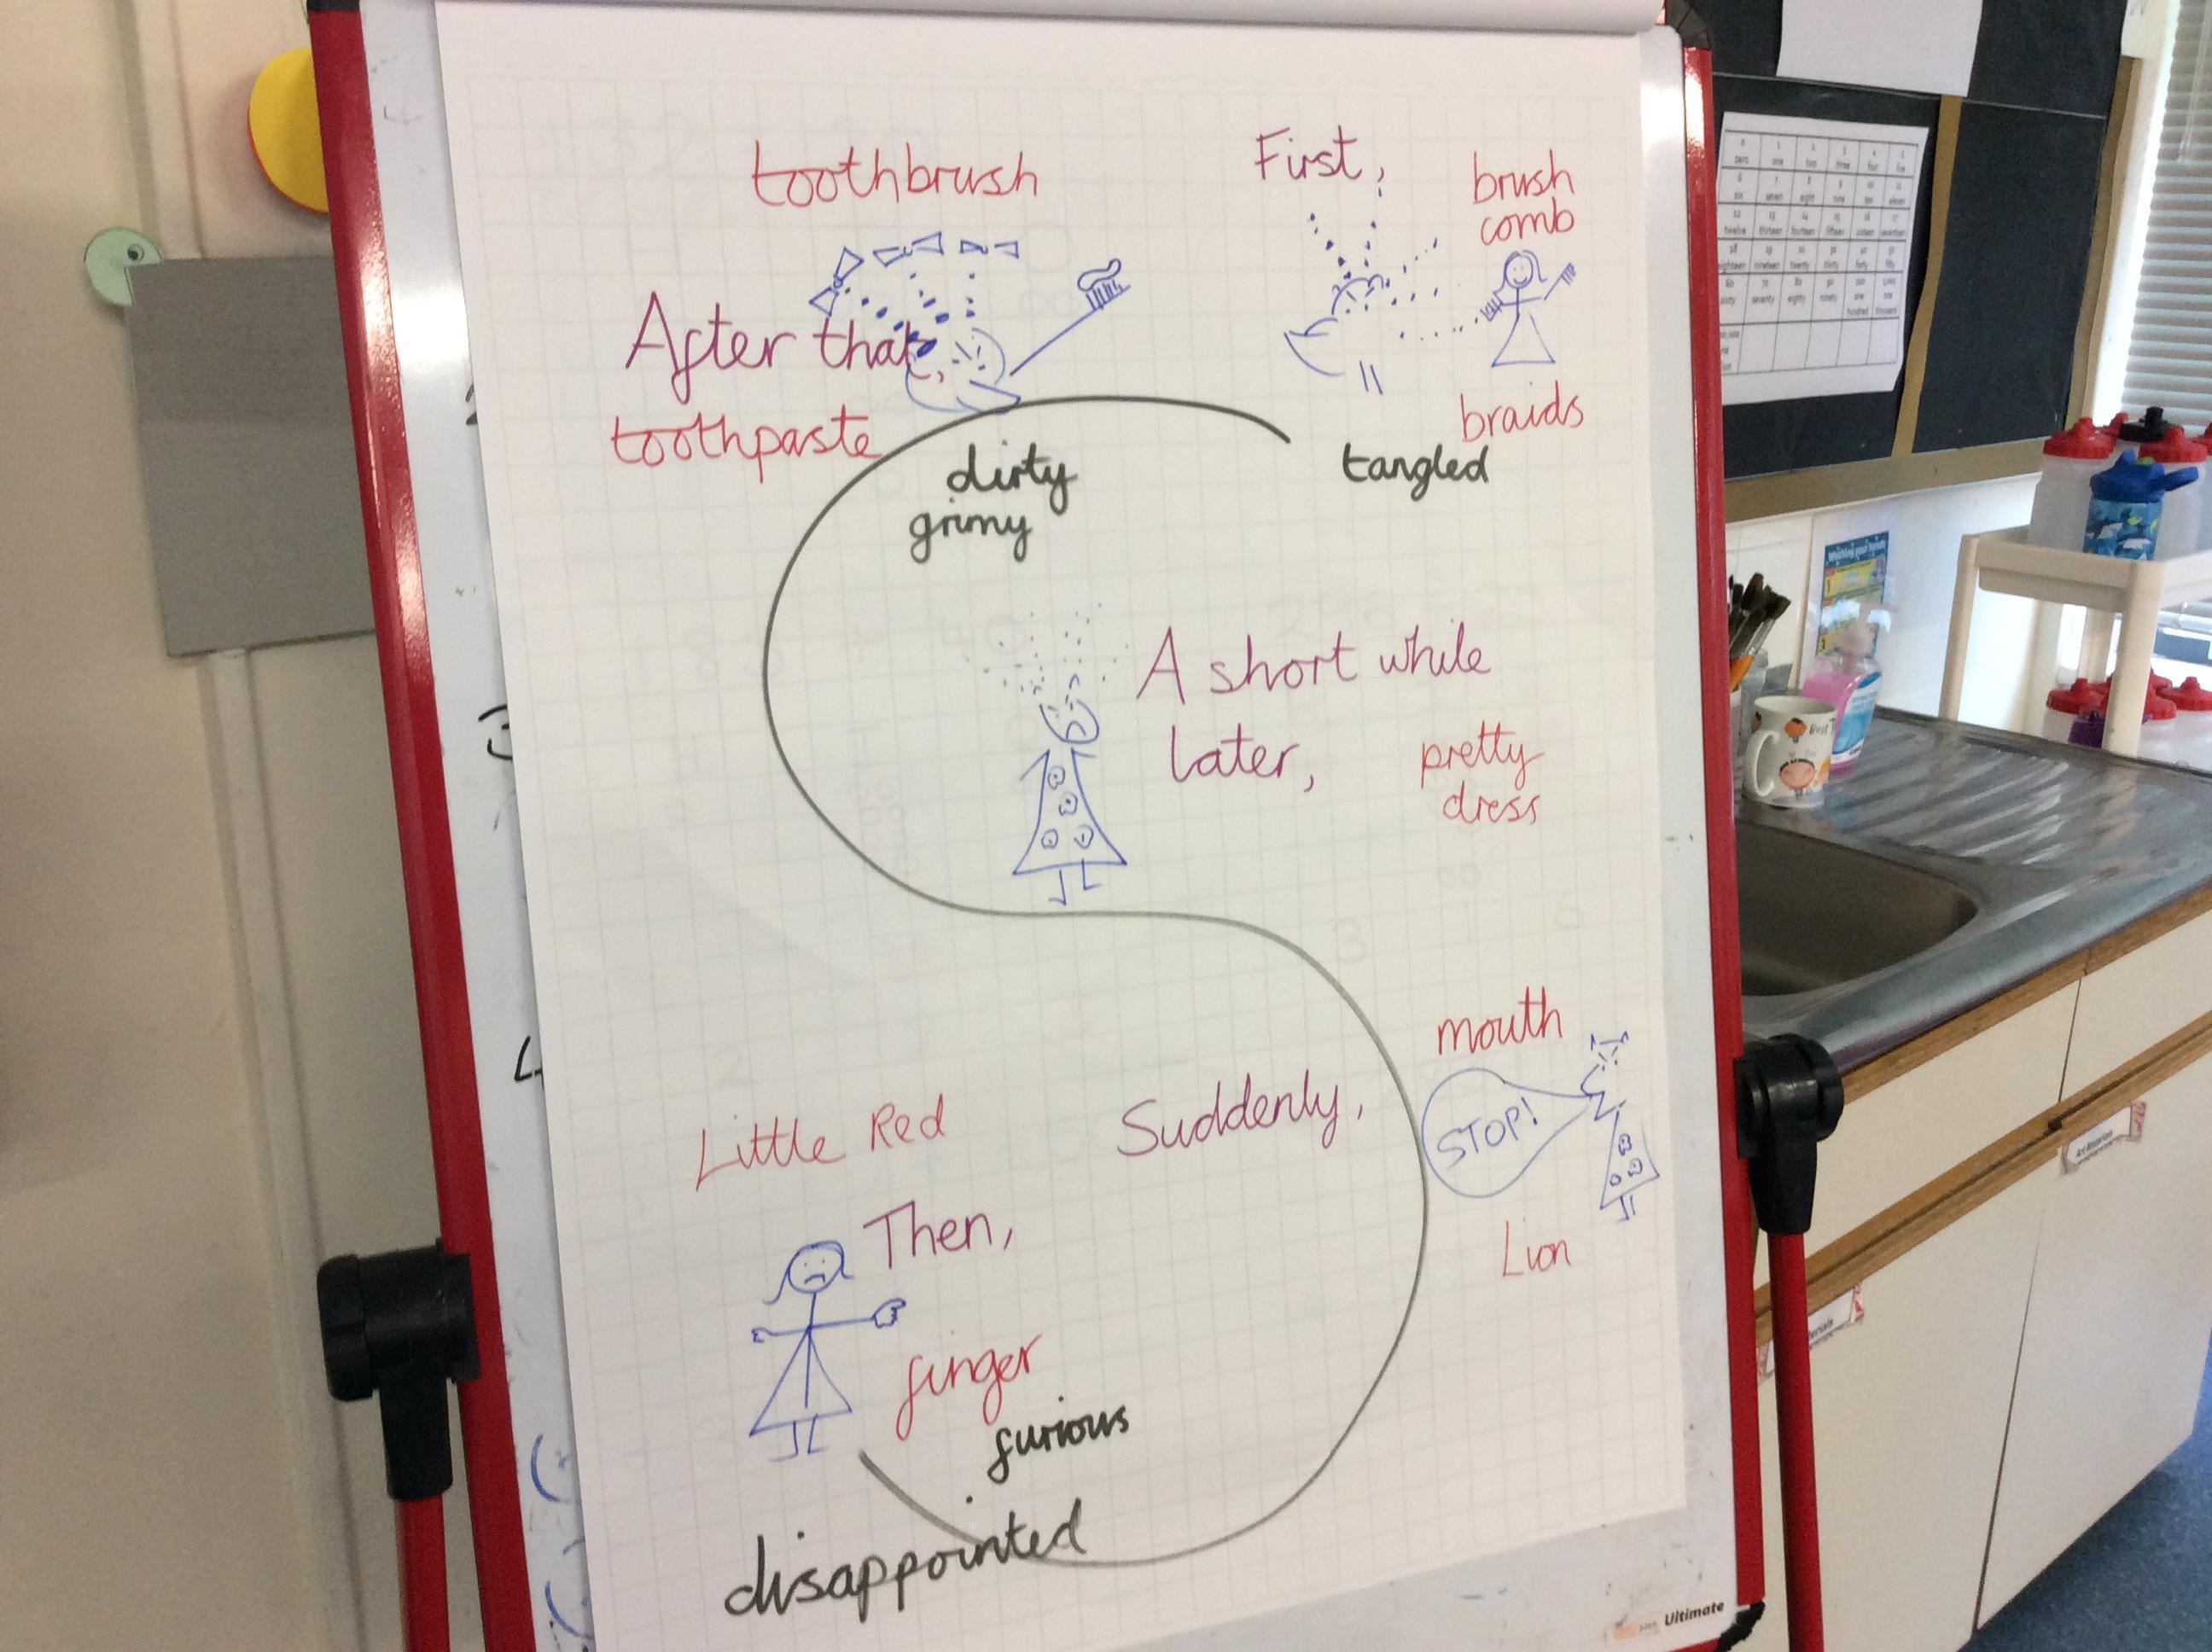 toothbrush
First,
brush
comb
After that,
toothpaste
braids
tangled
dirty
grimy
A short while
later,
pretty
dress
mouth
Suddenly,
STOP!
Lion
Little Red
Then,
finger
furious
disappointed
Ultimate